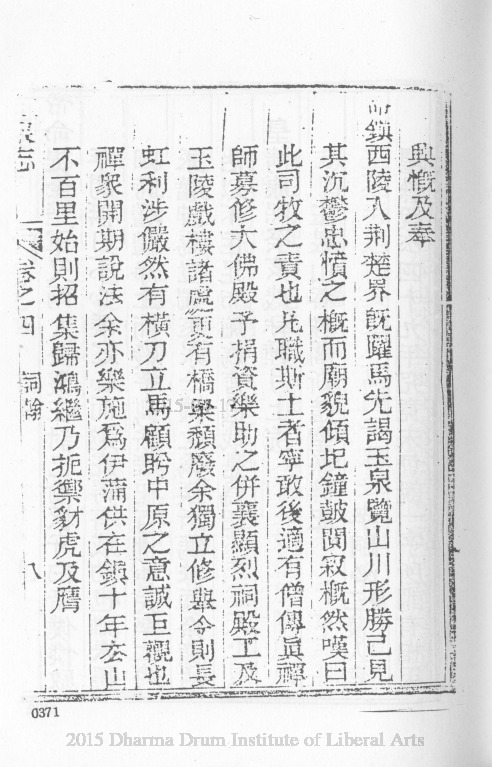 興慨及奉
命鎮西陵入荆楚界旣躍馬先謁玉泉覽山川形勝己見
其沉鬱忠憤之槪而廟貌傾圯鐘皷閴寂慨然嘆曰
此司牧之責也凡職斯土者寧敢後適有僧傳眞禪
師募修大佛殿予捐資樂助之併襄顯烈祠殿工及
玉陵戲樓諸處更有橋梁頽廢余獨立修舉令則長
虹利涉儼然有橫刀立馬顧盻中原之意誠巨觀也
禪衆開期說法余亦樂施爲伊蒲供在鎭十年玄山
不百里始則招集歸鴻繼乃扼禦豺虎及膺
泉志
卷之四
詞翰
八
0371
2015 Dharma Drum Institute of Liberal Arts